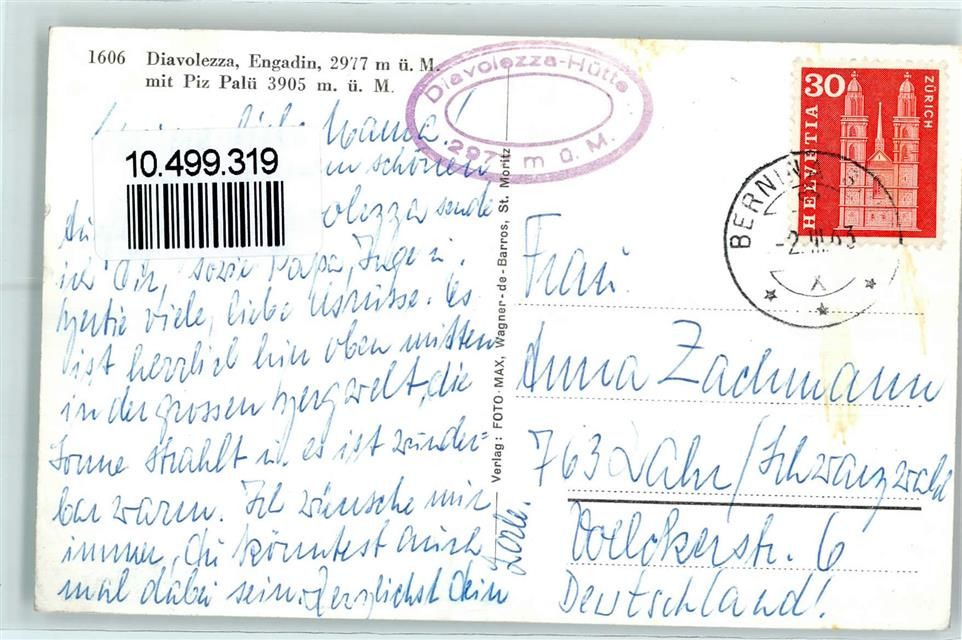 1606 Diavolezza, Engadin, 2977 m ü. M.
mit Piz Palü 3905 m. ü. M.
Diavolezza-Hütte
2977 m ü. M.
30
HELVETIA
ZÜRICH
BERNINA
-2.III.63
X
10.499.319
liebe Mama!
schönen
olezza sende
ich Dir, sowie Papa, Inge u.
Hertie viele, liebe Grüsse. Es
ist herrlich hier oben mitten
in der grossen Bergwelt, die
Sonne strahlt u. es ist wunder=
bar warm. Ich wünsche mir
immer, Du könntest auch
mal dabei sein. Herzlichst Dein
Verlag: FOTO-MAX, Wagner-de-Barros, St. Moritz
Frau
Anna Zachmann
763 Lahr / Schwarzwald
Voelckerstr. 6
Deutschland!